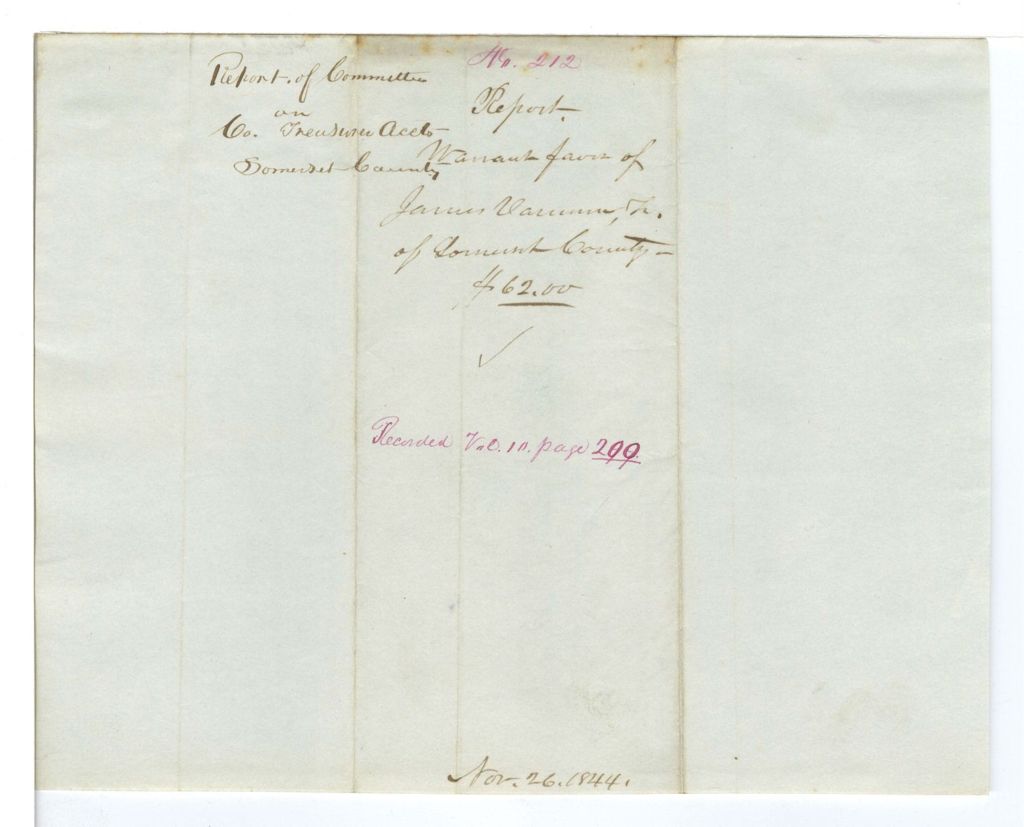 Report of Committee
on
Co. Treasurer Accts
Somerset County
No. 212
Report.
Warrant favor of
James Varnum, Tr.
of Somerset County –
$62.00
Recorded Vol. 10. page 299.
Nov. 26. 1844.